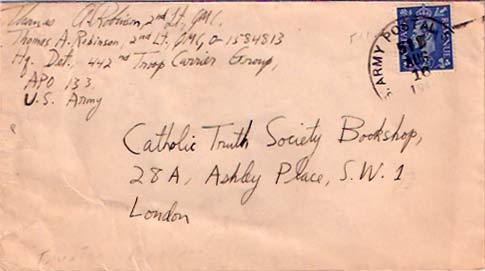 Thomas A. Robinson, 2nd Lt., QMC.
Thomas A. Robinson, 2nd Lt., QMC, O-1584813
Hq. Det., 442nd Troop Carrier Group,
APO 133
U.S. Army
ARMY POSTAL
AUG
16
POSTAGE
REVENUE
Catholic Truth Society Bookshop,
28A, Ashley Place, S.W. 1
London